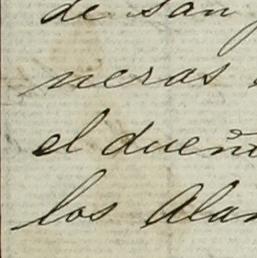 de san
neras
el dueñ
los Alam